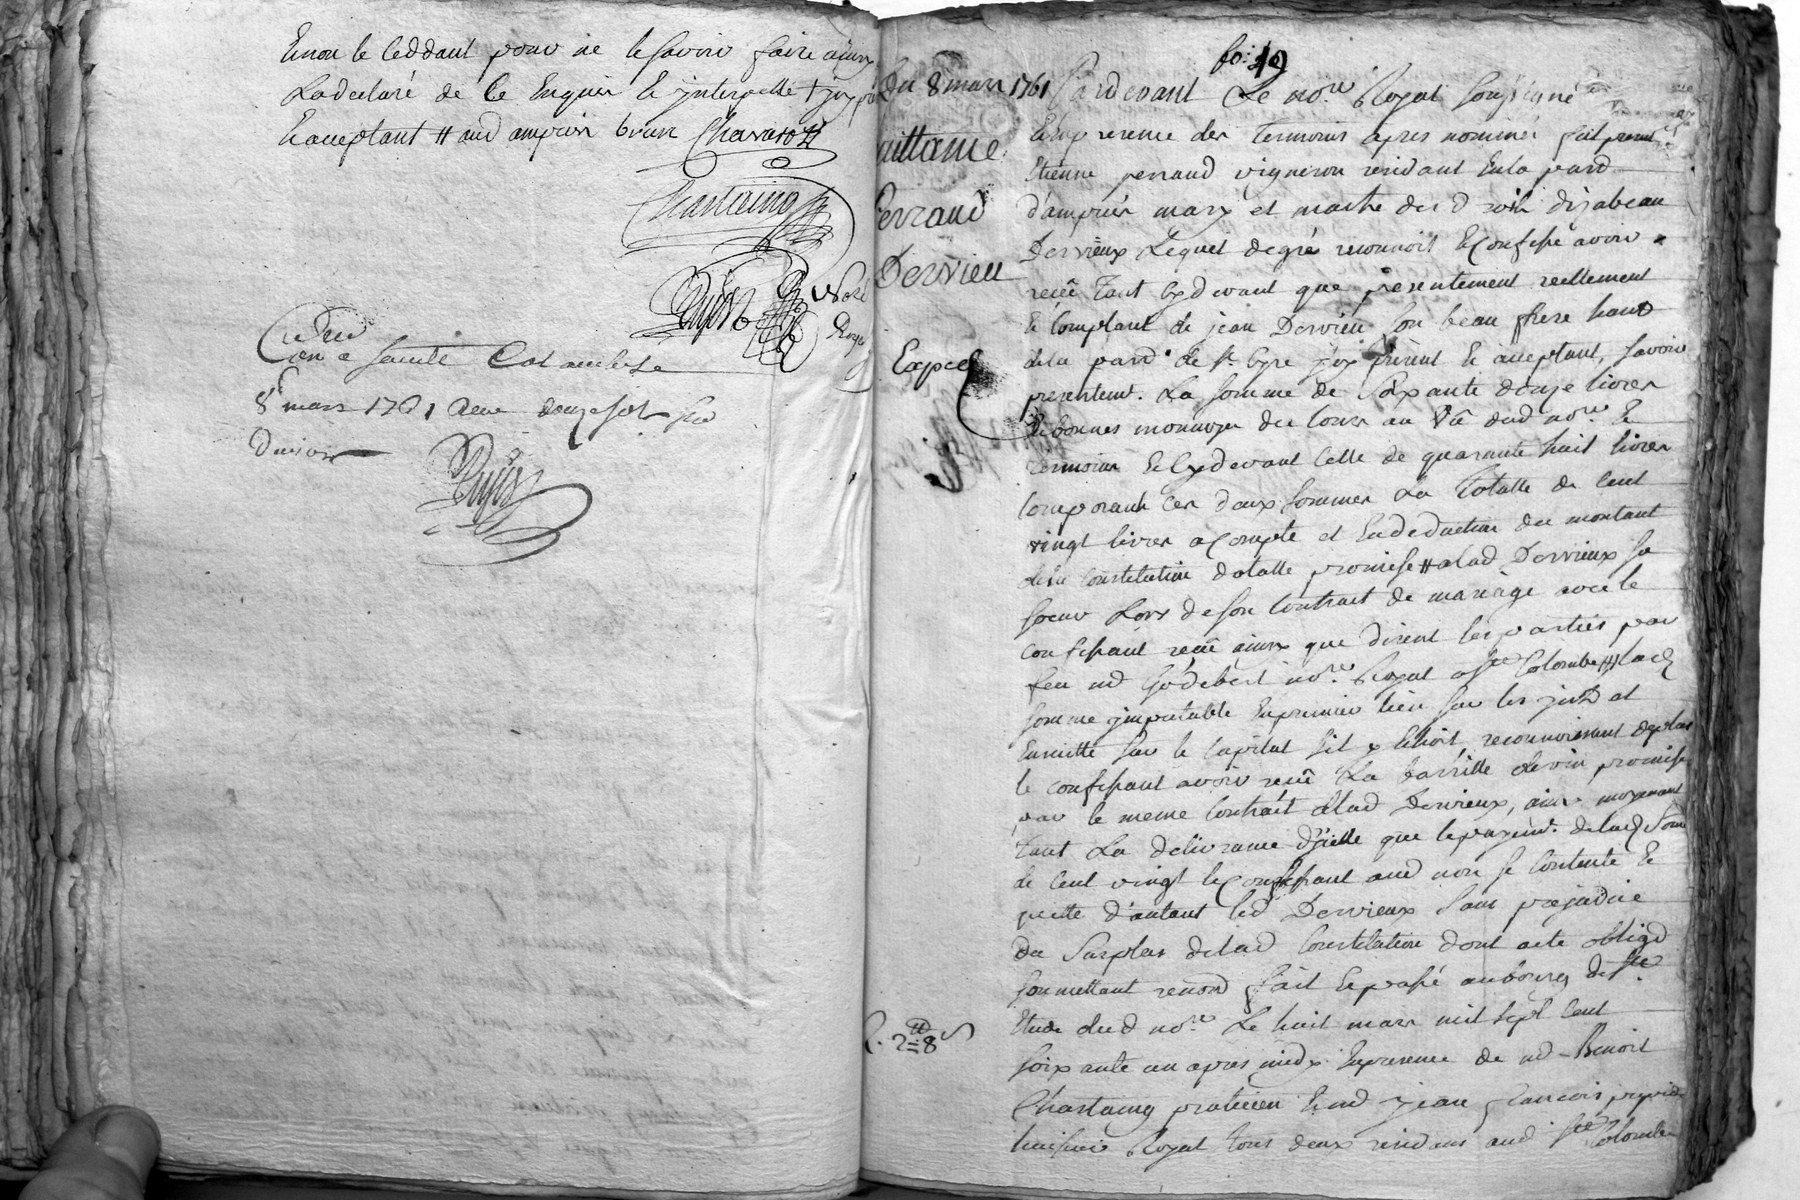 Et non le ceddant pour ne le savoir faire ainsy
La declaré de ce Enquis Et interpellé
Et acceptant aud ampuis brun Chavaroz
Chastaing
Dujast
Roy
Con a sainte Colombe le
8e mars 1761 Reçu douze sols
Dujast
fo: 19
Du 8 mars 1761
quittance
Perraud
Dervieu
Expée
C. 2 = 8
Pardevant Le nore Royal soussigné
En presence des Temoins apres nommés fut present
Etienne perraud vigneron residant En la parr
d'ampuis mary et maitre des d roits d'izabeau
Dervieux Lequel de gré reconnoit Et confesse avoir
receu tant cy devant que présentement reellement
Et comptant de jean Dervieu son beau frere habt
de la parr de st Cyre icy présent Et acceptant, savoir
presentemt. La somme de soixante douze livres
En bonnes monnoyes du cours au Vû dud nore Et
Temoins Et cy devant Celle de quarante huit livres
Composant Ces deux sommes La Totalle de Cent
vingt livres a Compte et En deduction du montant
de la Constitution dotalle promise a lad Dervieux sa
soeur Lors de son Contrait de mariage avec le
confessant receu ainsy que disent les parties par
feu md Godebert nore Royal a ste Colombe lad
somme imputable En premier lieu sur les
Ensuitte sur le Capital sil y Echoit, reconnoissant de plus
le confessant avoir receu La barrille de vin promise
par le meme Contrait a lad Dervieux, ainsy moyenant
tant La delivrance d'icelle que le payemt. de lad Som
de Cent vingt le Confessant aud nom se Contente Et
quitte d'autant led Dervieux sans prejudice
du Surplus de lad Constitution dont acte obligd
soumettant renond fait Et passé au bourg de ste
Etude dud nore Le huit mars mil sept Cent
soixante un apres midy En presence de md Benoit
Chastaing praticien Et md jean francois
huissier Royal tous deux residans aud ste Colombe